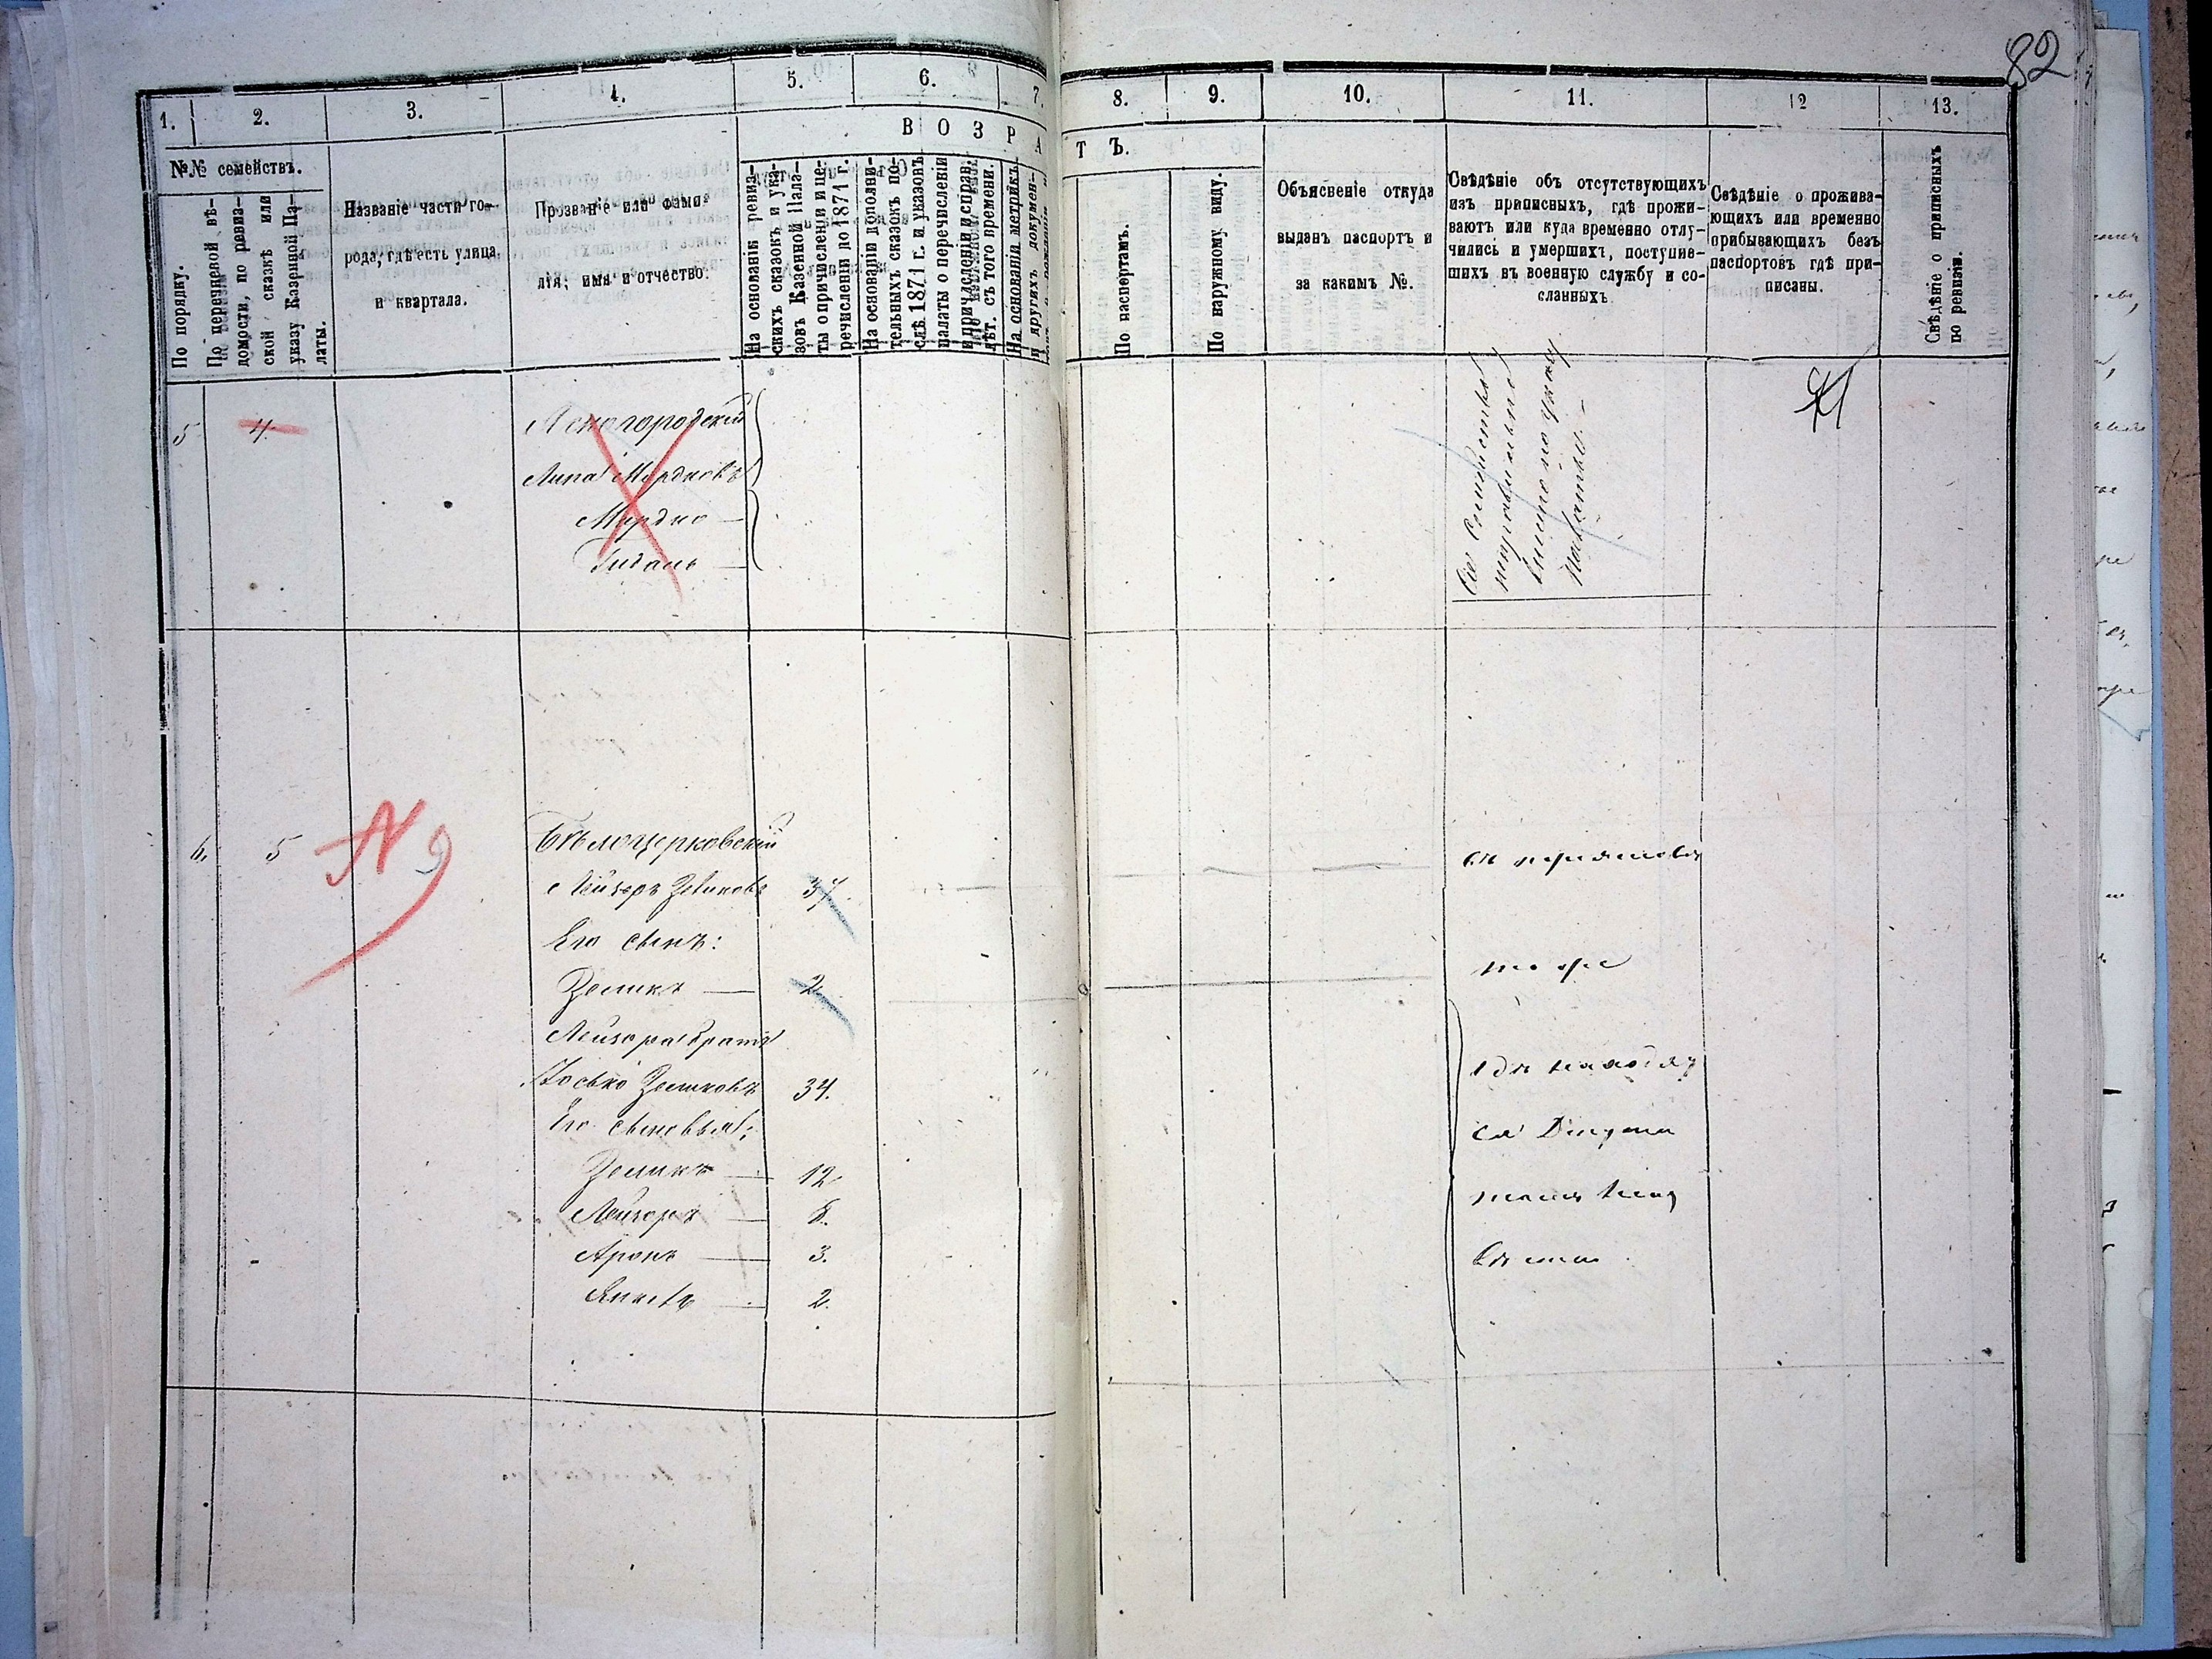 82
1.
2.
3.
4.
5.
6.
7.
8.
9.
10.
11.
12
13.
В О З Р А
Т Ъ.
№№ семействъ.
По порядку.
По перечневой вѣ-
домости, по ревиз-
ской сказкѣ или
указу Казенной Па-
латы.
Названіе части го-
рода, гдѣ есть улица
и квартала.
Прозваніе или фами-
лія, имя и отчество.
На основаніи ревиз-
скихъ сказокъ и ука-
зовъ Казенной Пала-
ты о причисленіи и пе-
речисленіи до 1871 г.
На основаніи дополни-
тельныхъ сказокъ по-
слѣ 1871 г. и указовъ
палаты о перечисленіи
и причисленіи справ.
лѣт. съ того времени.
На основаніи метрикъ
и другихъ докумен-
По паспортамъ.
По наружному виду.
Объясненіе откуда
выданъ паспортъ и
за какимъ №.
Свѣдѣніе объ отсутствующихъ
изъ приписныхъ, гдѣ прожи-
ваютъ или куда временно отлу-
чились и умершихъ, поступив-
шихъ въ военную службу и со-
сланныхъ
Свѣдѣніе о прожива-
ющихъ или временно
прибывающихъ безъ
паспортовъ гдѣ при-
писаны.
Свѣдѣніе о приписныхъ
по ревизіи.
5
4.
Ясногородскій
Липа Мордковъ
Мордко —
Сіе Семейство
неправильно
внесено по указу
Палаты. —
6.
5
N 9
Бѣлоцерковскій
Лейзоръ Зеликовъ 37.
Его сынъ:
Зеликъ — 2
тоже
Лейзора братъ
Іосько Зеликовъ 34.
Его сыновья:
Зеликъ — 12
Лейзоръ — 8.
Аронъ — 3.
Янкель — 2.
гдѣ находят
ся